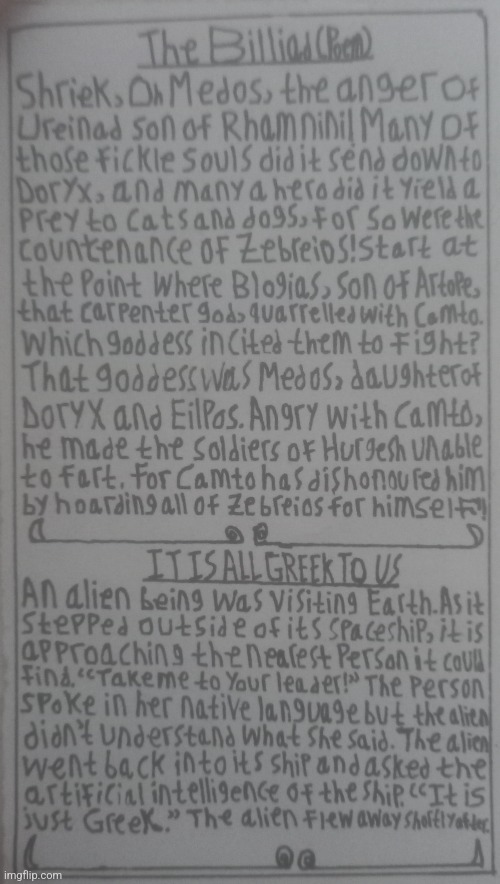 The Billiad (Poem)
Shriek, Oh Medos, the anger of
Ureinad son of Rhamnini! Many of
those fickle souls did it send down to
Doryx, and many a hero did it yield a
prey to cats and dogs, for so were the
countenance of Zebreios! Start at
the point where Blogias, son of Artope,
that carpenter god, quarrelled with Camto.
Which goddess incited them to fight?
That goddess was Medos, daughter of
Doryx and Eilpos. Angry with Camto,
he made the soldiers of Hurgesh unable
to fart. For Camto has dishonoured him
by hoarding all of Zebreios for himself!
IT IS ALL GREEK TO US
An alien being was visiting Earth. As it
stepped outside of its spaceship, it is
approaching the nearest person it could
find. “Take me to your leader!” The person
spoke in her native language but the alien
didn't understand what she said. The alien
went back into its ship and asked the
artificial intelligence of the ship. “It is
just Greek.” The alien flew away shortly after.
imgflip.com